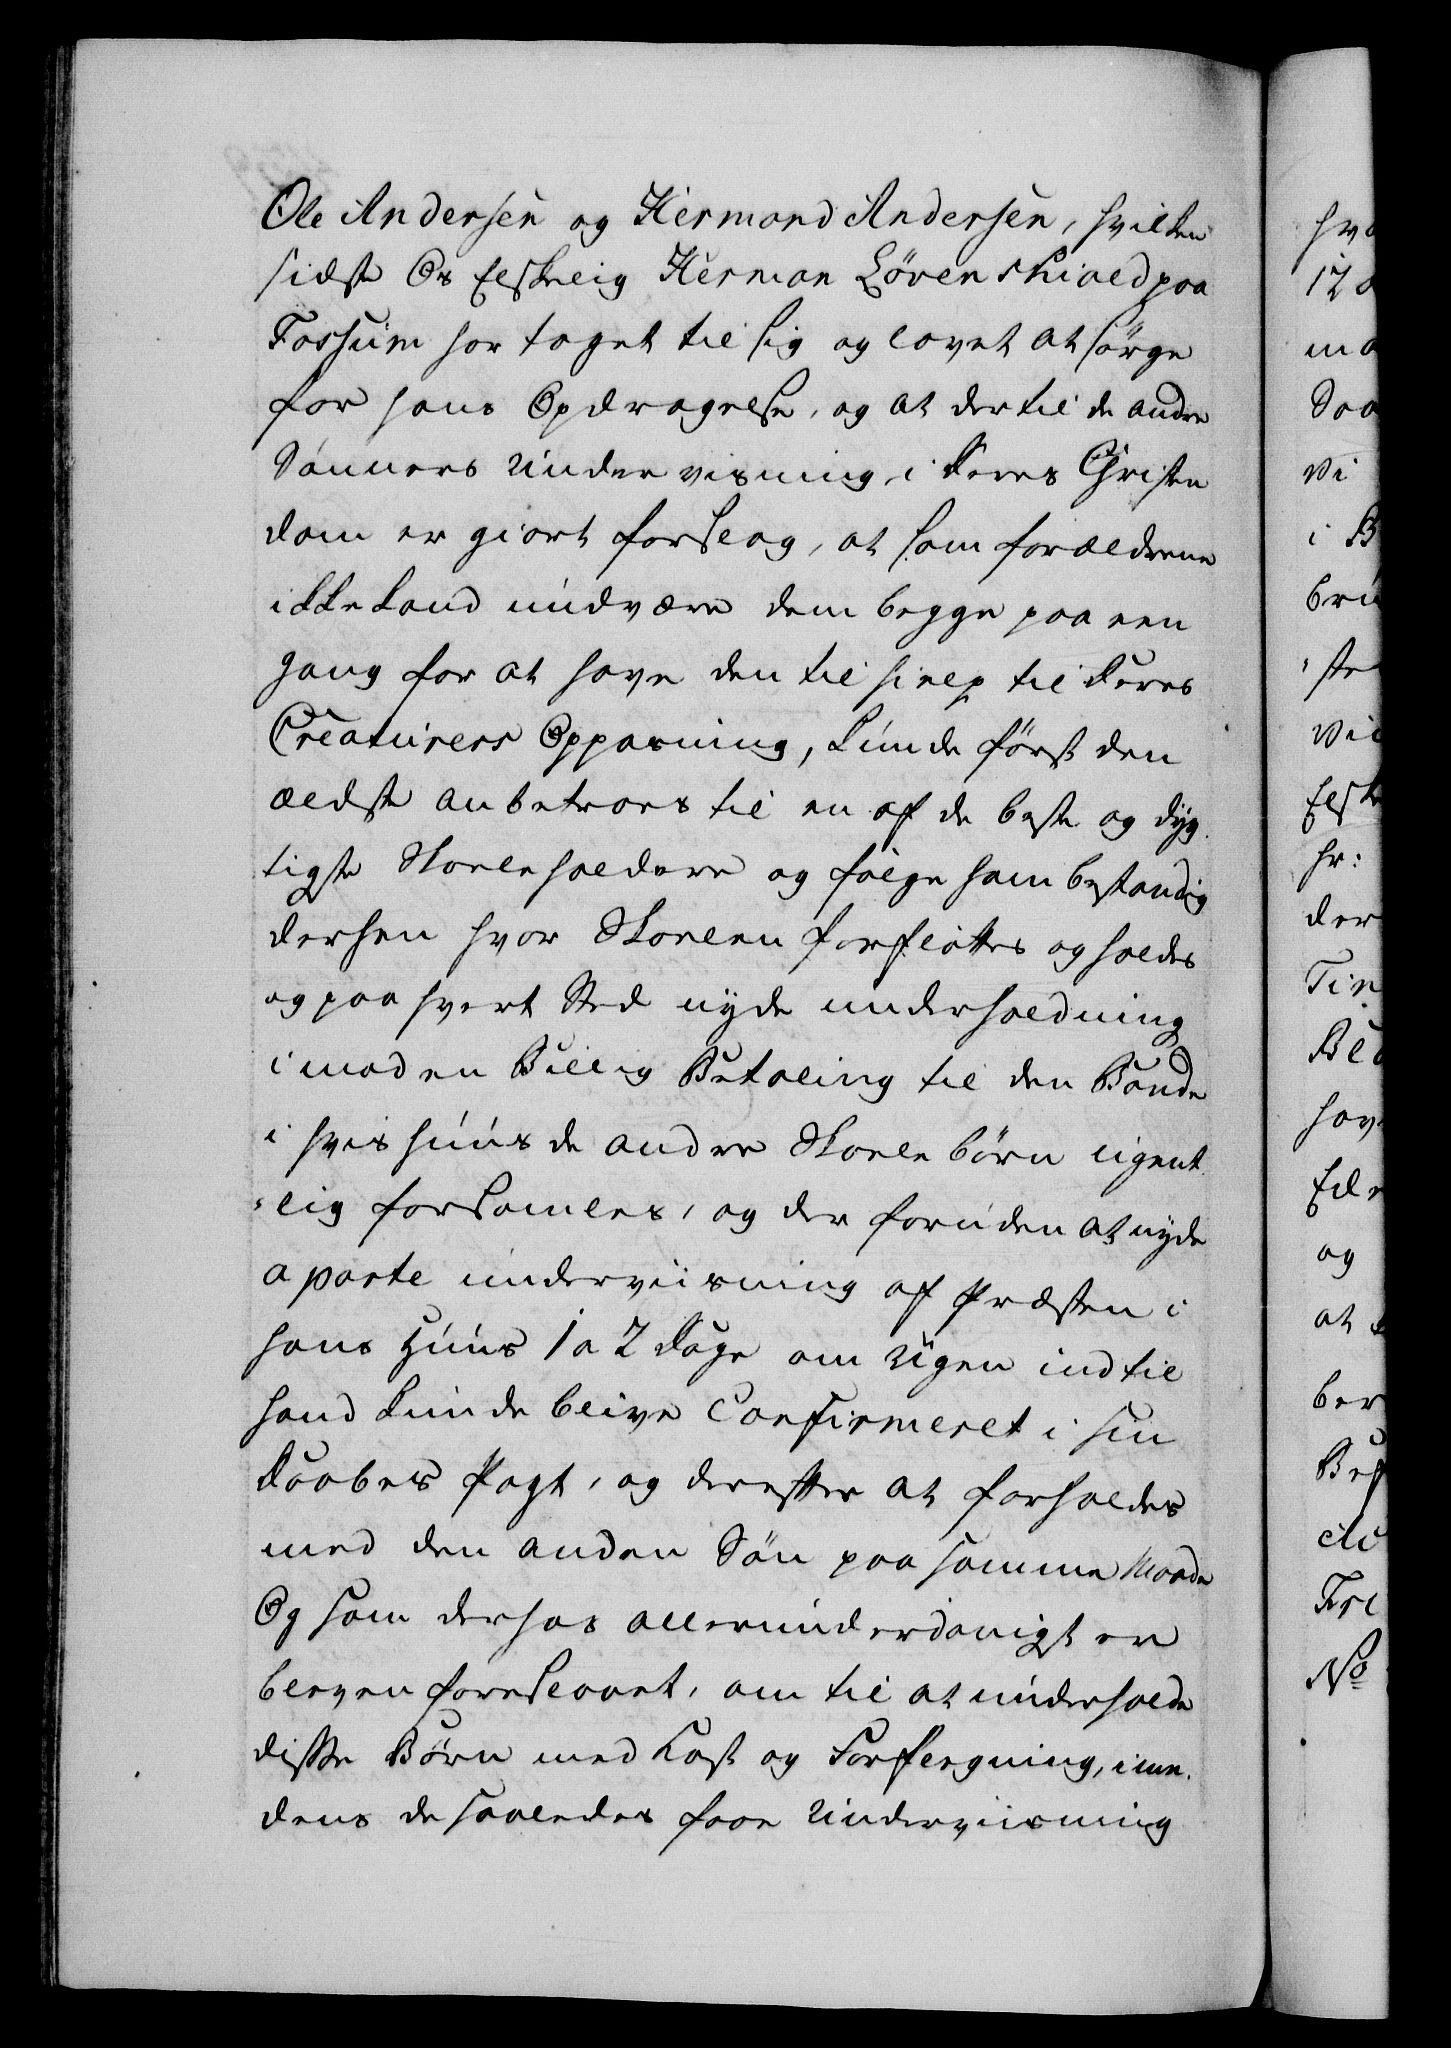 Ole Andersen og Hermand Andersen, hvilken
sidste Os Elskelig Herman Løvenskiold paa
Fossum har taget til sig og lovet at sörge
for hans Opdragelse, og at der til de andre
Sönners Underviisning i deres Christen
dom er giort forslag, at som forældrene
ikke kand undvære dem begge paa een
gang for at have den til hielp til deres
Creaturers Oppasning, kunde först den
ældste anbetroes til en af de beste og dyg
tigste Skoeleholdere og fölge ham bestandig
derhen hvor Skoelen forflöttes og holdes
og paa hvert Sted nyde underholdning
imod en Billig Betaling til den Bonde
i hvis huus de andre Skoele börn eigent
lig forsamles, og der foruden at nyde
aparte underviisning af Præsten i
hans Huus 1 a 2 Dage om Ugen indtil
hand kunde blive Confirmeret i sin
Daabes Pagt, og derefter at forholdes
med den anden Sön paa samme Maade
Og som derhos allerunderdanigst er
bleven foreslaaet, om til at underholde
disse Börn med Kost og Forflegning, ime
dens de saaledes faae Underviisning
hv
12
ma
Saa
vi
i B
bru
ste
vi
Elsk
hr:
der
Tin
hav
og
at
ber
Bef
Fre
No